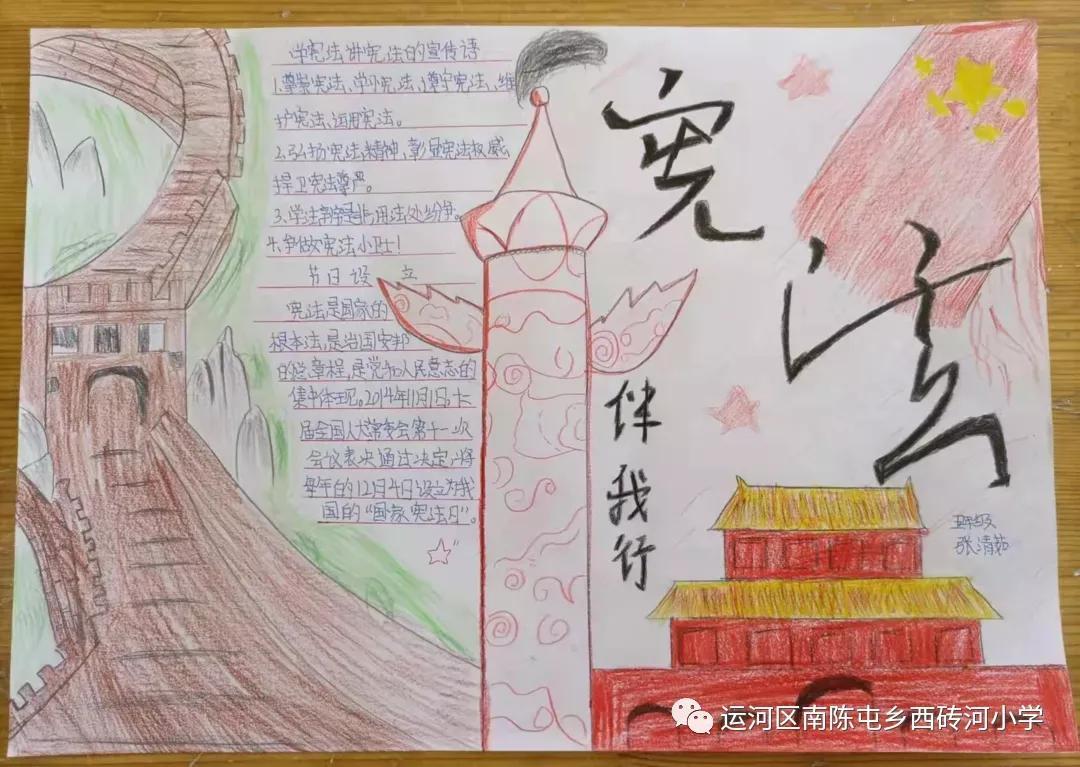 学宪法讲宪法的宣传语
1.尊崇宪法、学习宪法、遵守宪法、维
护宪法、运用宪法。
2.弘扬宪法精神、彰显宪法权威,
捍卫宪法尊严。
3.学法辩是非,用法处纷争。
4.争做宪法小卫士!
节日设立
宪法是国家的
根本法,是治国安邦
的总章程,是党和人民意志的
集中体现。2014年11月1日,十二
届全国人大常委会第十一次
会议表决通过决定,将
每年的12月4日设立为我
国的“国家宪法日”。
宪法
伴我行
五年级
张清茹
运河区南陈屯乡西砖河小学